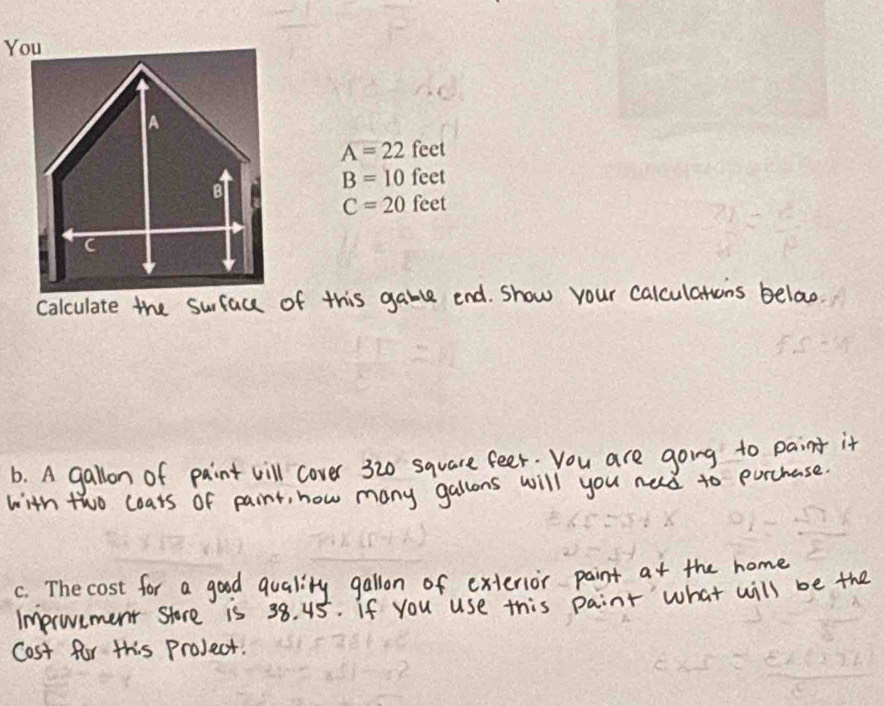 You
A
B
C
A = 22 feet
B = 10 feet
C = 20 feet
Calculate the surface of this gable end. Show your calculations below.
b. A gallon of paint will cover 320 square feet. You are going to paint it
with two coats of paint, how many gallons will you need to purchase.
c. The cost for a good quality gallon of exterior paint at the home
Improvement Store is 38.45. if you use this paint what will be the
Cost for this Project.